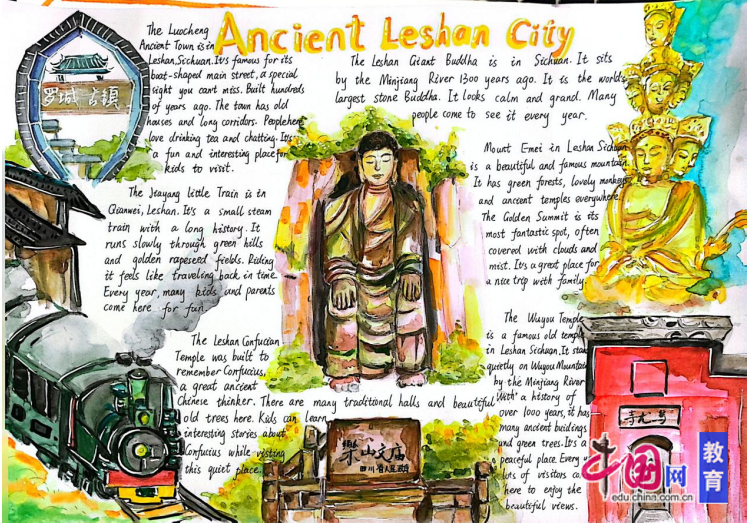 Ancient Leshan City
The Luocheng
Ancient Town is in
Leshan,Sichuan. It's famous for its
boat-shaped main street, a special
sight you cant miss. Built hundreds
of years ago. The town has old
houses and long corridors. People here
love drinking tea and chatting. It's
a fun and interesting place for
kids to visit.
罗城古镇
The Leshan Giant Buddha is in Sichuan. It sits
by the Minjiang River 1300 years ago. It is the worlds
largest stone Buddha. It looks calm and grand. Many
people come to see it every year.
Mount Emei in Leshan Sichuan
is a beautiful and famous mountain.
It has green forests, lovely monkeys
and ancient temples everywhere.
The Golden Summit is its
most fantastic spot, often
covered with clouds and
mist. It's a great place for
a nice trip with family.
The Jiayang little Train is in
Qianwei, Leshan. It's a small steam
train with a long history. It
runs slowly through green hills
and golden rapeseed fields. Riding
it feels like traveling back in time.
Every year, many kids and parents
come here for fun.
The Leshan Confucian
Temple was built to
remember Confucius,
a great ancient
Chinese thinker. There are many traditional halls and beautiful
old trees here. Kids can learn
interesting stories about
Confucius while visiting
this quiet place.
乐山文庙
The Wuyou Temple
is a famous old temple
in Leshan Sichuan. It stan
quietly on Wuyou Mountain
by the Minjiang River
With a history of
over 1000 years, it has
many ancient buidings
and green trees. It's a
peaceful place. Every
of visitors
here to enjoy the
beautiful views.
寺尤乌
中国网
edu.china.com.cn
教育